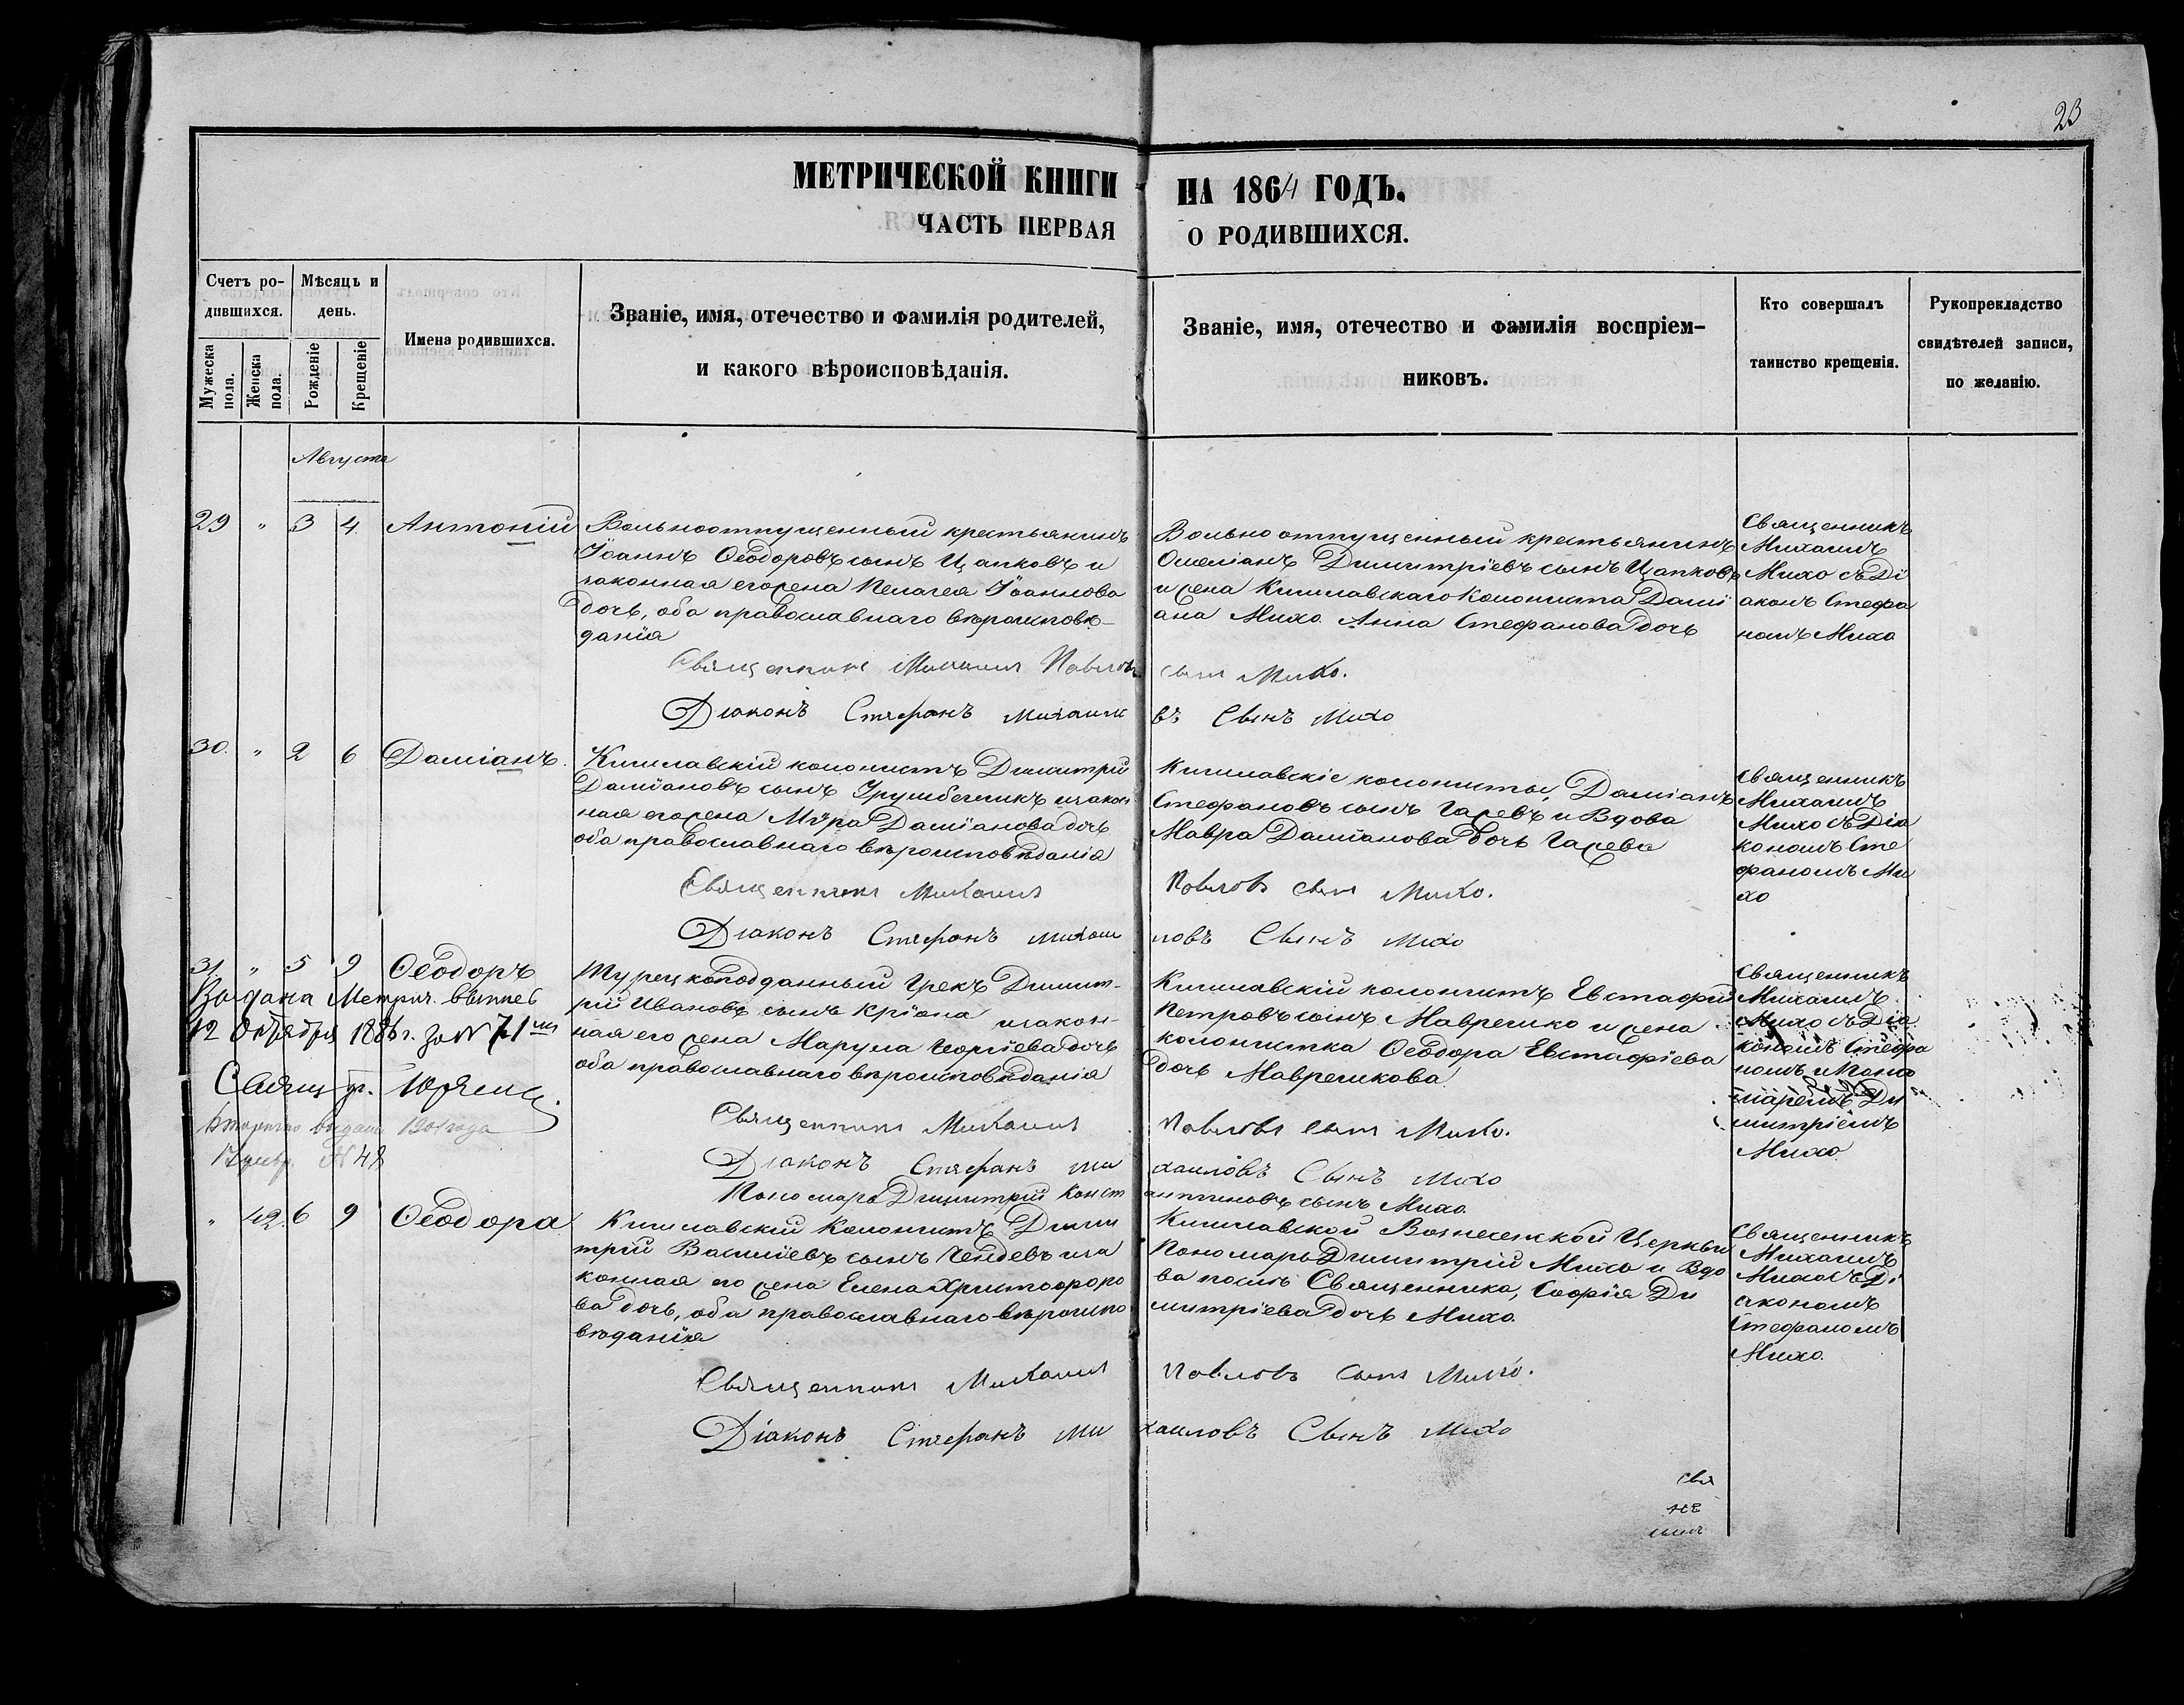 23
МЕТРИЧЕСКОЙ КНИГИ НА 1864 ГОДЪ.
ЧАСТЬ ПЕРВАЯ О РОДИВШИХСЯ.
Счетъ ро-
дившихся.
Мужеска пола.
Женска пола.
Мѣсяцъ и
день.
Рожденіе
Крещеніе
Имена родившихся.
Званіе, имя, отечество и фамилія родителей,
и какого вѣроисповѣданія.
Званіе, имя, отечество и фамилія воспріем-
никовъ.
Кто совершалъ
таинство крещенія.
Рукоприкладство
свидѣтелей записи,
по желанію.
Августа
29 " 3 4 Антоній
Вольноотпущенный крестьянинъ
Іоаннъ Ѳеодоровъ сынъ Цапковъ и
законная его жена Пелагея Іоаннова
дочь, оба православнаго вѣроисповѣ-
данія
Вольноотпущенный крестьянинъ
Димитріевъ сынъ Цапковъ
и жена колониста Дамі
ана Михо Анна Стефанова дочь
Священникъ
Михаилъ
Михо съ Ді
акономъ Стефа
номъ Михо
Священникъ Михаилъ Павловъ сынъ Михо.
Діаконъ Стефанъ Михаиловъ Сынъ Михо
30. " 2 6 Даміанъ.
колонистъ Димитрій
Даміановъ сынъ и закон
ная его жена Даміанова дочь
оба православнаго вѣроисповѣданія
колонисты, Даміанъ
Стефановъ сынъ и Вдова
Мавра Даміанова дочь
Священникъ
Михаилъ
Михо съ Діа
кономъ Сте
фаномъ Ми
хо
Священникъ Михаилъ Павловъ сынъ Михо.
Діаконъ Стефанъ Михаиловъ Сынъ Михо
31 " 5 9 Ѳеодоръ
Выдана Метрич. выпись
12 Октября 188 г. за N 71
Свящ.
Вторично выдана 1901 года
N 48
Турецкоподданный Грекъ Димит-
рій Ивановъ сынъ и закон-
ная его жена Марула Георгіева дочь
оба православнаго вѣроисповѣданія
колонистъ Евстафій
Петровъ сынъ и жена
колонистка Ѳеодора Евстафіева
дочь
Священникъ
Михаилъ
Михо съ Діа
кономъ Стефа
номъ и Поно
маремъ Ди
митріемъ
Михо
Священникъ Михаилъ Павловъ сынъ Михо.
Діаконъ Стефанъ Михаиловъ Сынъ Михо
Пономарь Димитрій Константиновъ сынъ Михо
" 42. 6 9 Ѳеодора
Колонистъ Дими
трій Васильевъ сынъ и за
конная его жена Елена Христофоро
ва дочь, оба православнаго вѣроиспо
вѣданія
Вознесенской Церкви
Пономарь Димитрій Михо и Вдо
ва Священника, Софія Ди
митріева дочь Михо
Священникъ
Михаилъ
Михо съ Ді
акономъ
Стефаномъ
Михо.
Священникъ Михаилъ Павловъ сынъ Михо.
Діаконъ Стефанъ Михаиловъ Сынъ Михо